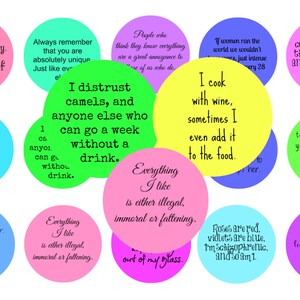 Always remember
that you are
absolutely unique.
Just like ev
People who
think they know everything
are a great annoyance to
se of us who do.
If women ran the
world we wouldn't
, just intense
ery 28
I distrust
camels, and
anyone else who
can go a week
without a
drink.
I cook
with wine,
sometimes I
even add it
to the food.
Everything
I like
is either illegal,
immoral or fattening.
Everything
I like
is either illegal,
immoral or fattening.
out of my glass.
Roses are red,
violets are blue,
I'm schizophrenic,
and so am I.